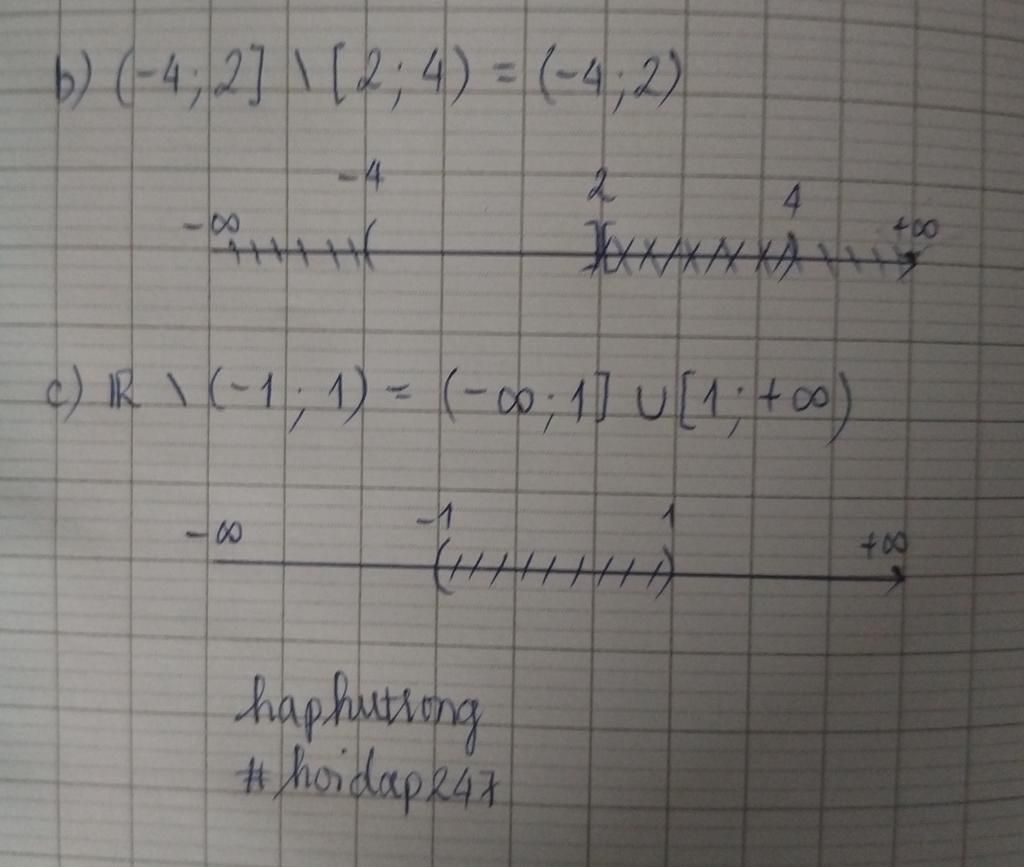 b) (-4; 2] \ [2; 4) = (-4; 2)
-4 2 4
-∞ +∞
c) ℝ \ (-1; 1) = (-∞; 1] ∪ [1; +∞)
-∞ -1 1 +∞
haphutrong
#hoidap247